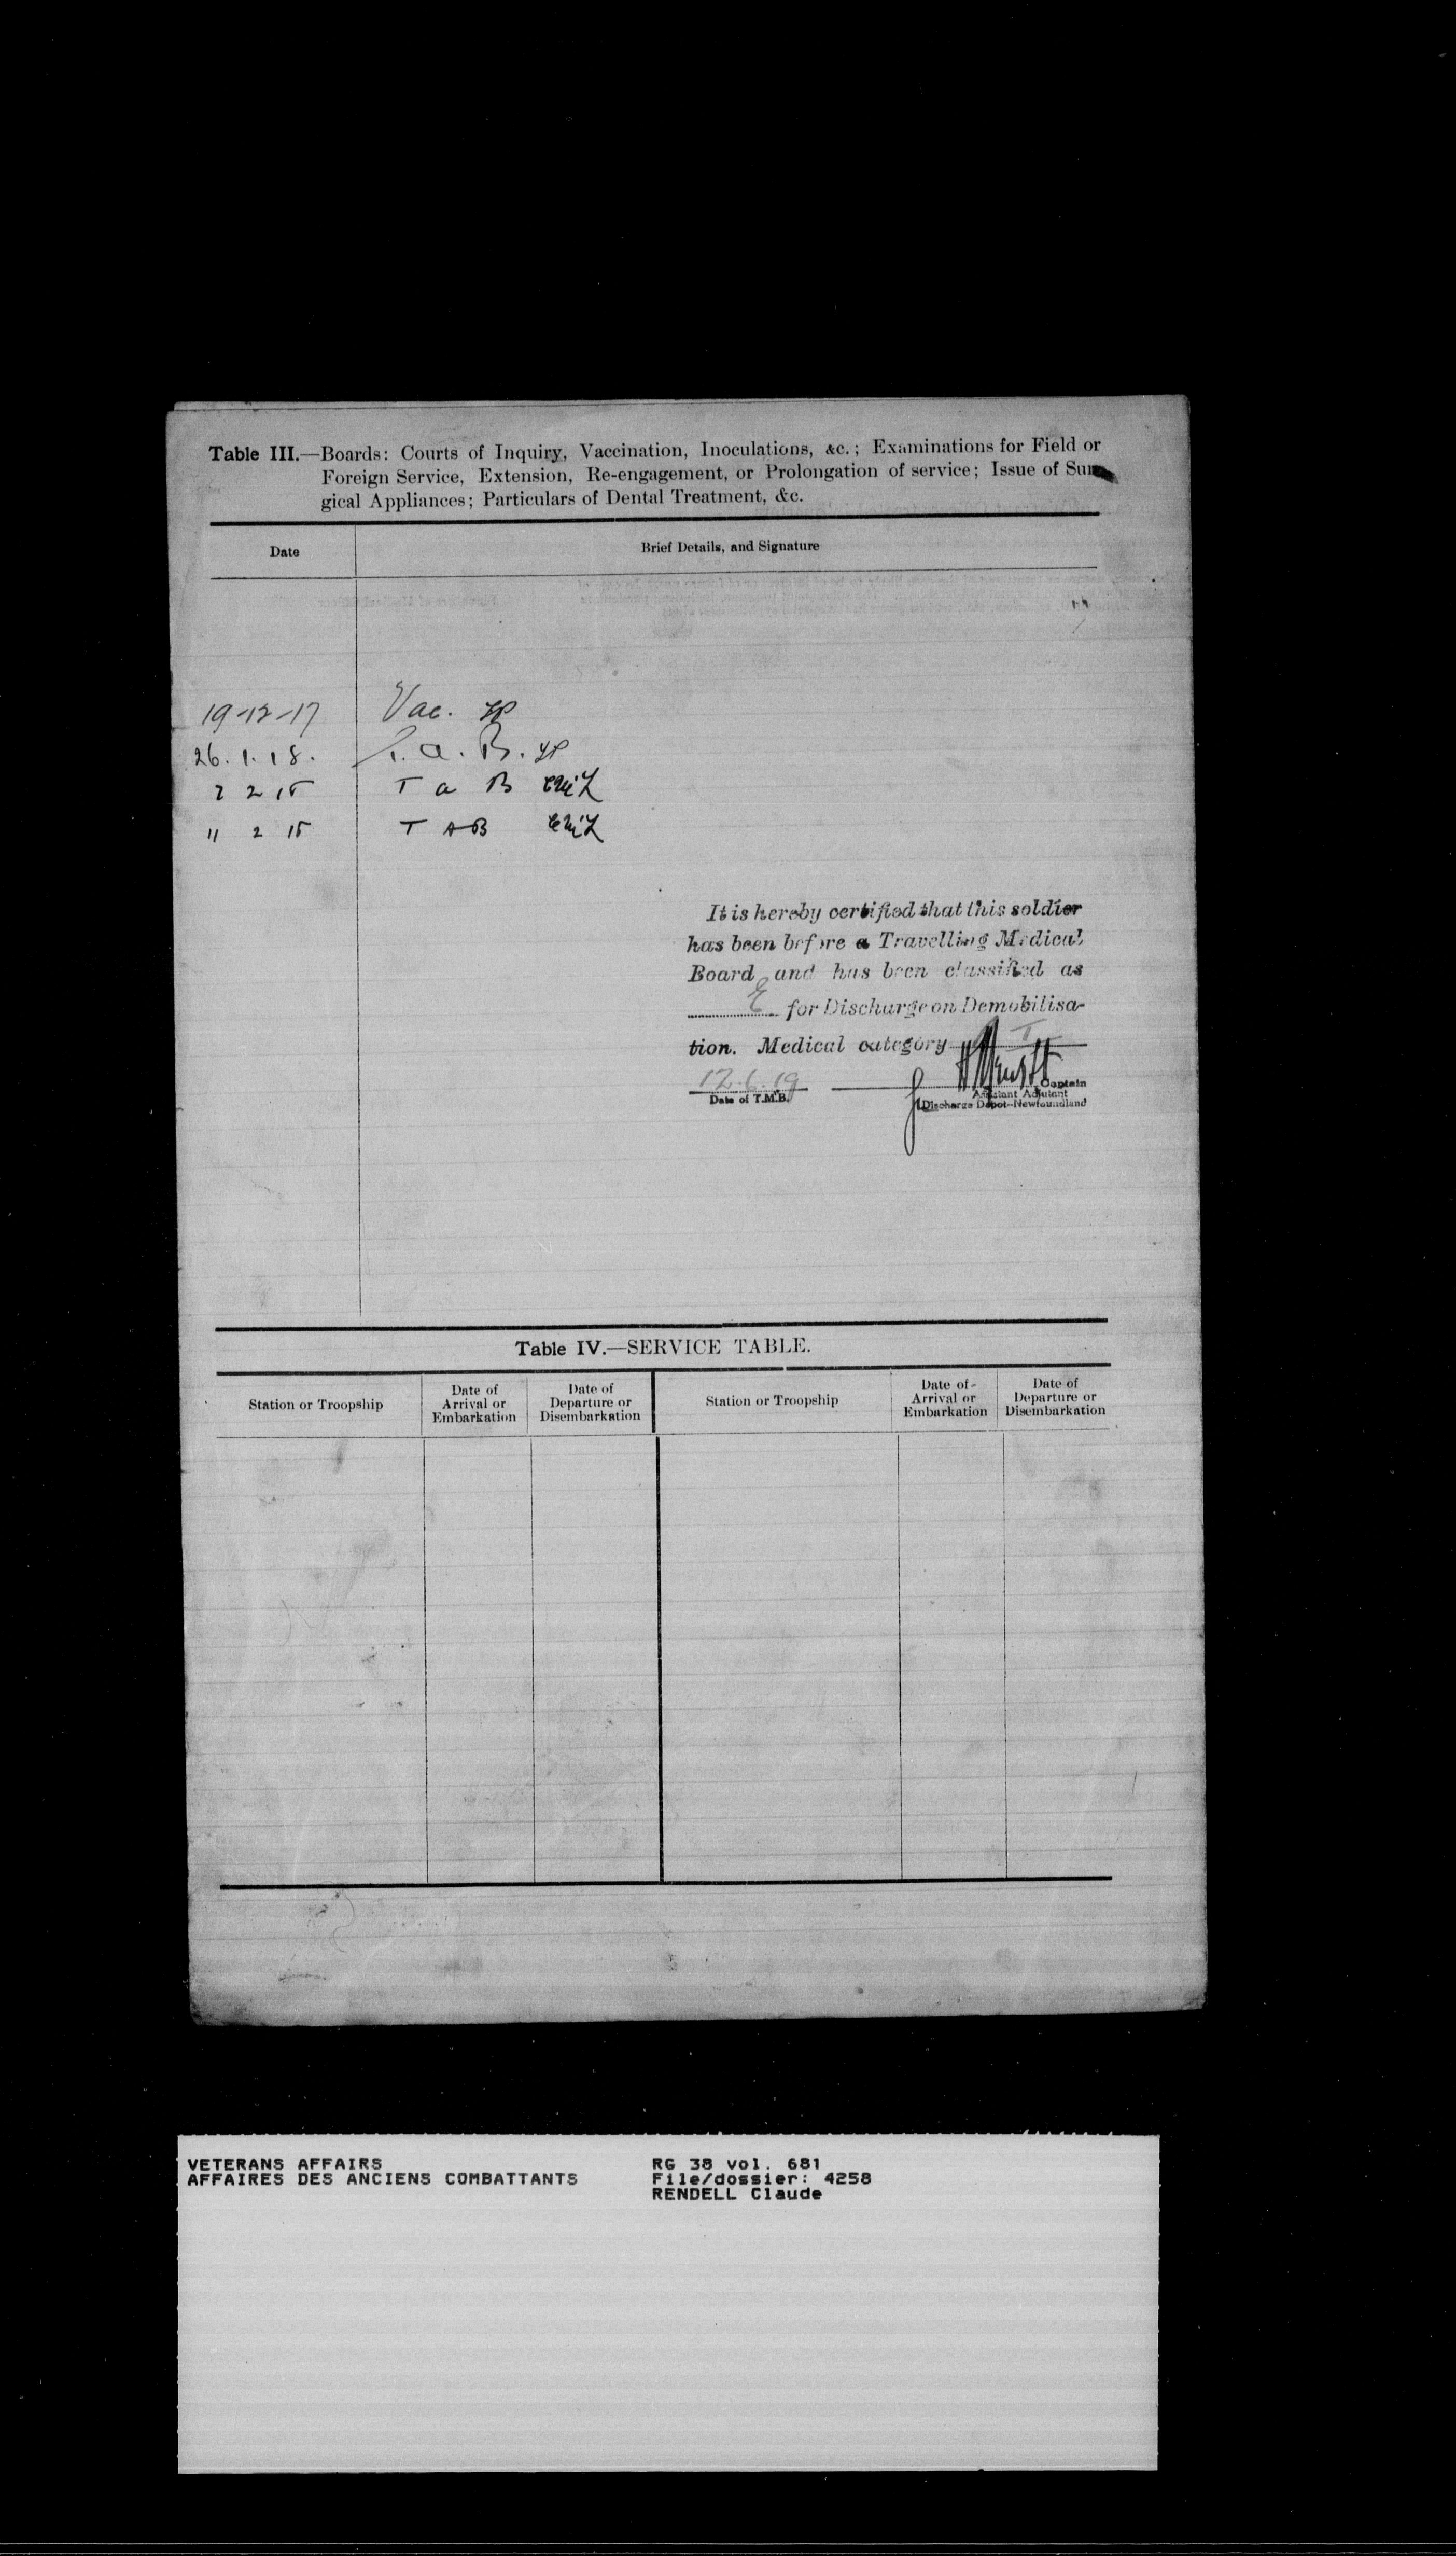 Table III.—Boards: Courts of Inquiry, Vaccination, Inoculations, &c.; Examinations for Field or
Foreign Service, Extension, Re-engagement, or Prolongation of service; Issue of Sur-
gical Appliances; Particulars of Dental Treatment, &c.
Date Brief Details, and Signature
19-12-17 Vac.
26.1.18. T.A.B.
2 2 18 T a B
11 2 18 T A B
It is hereby certified that this soldier
has been before a Travelling Medical
Board and has been classified as
E for Discharge on Demobilisa-
tion. Medical category
12.6.19 Captain
Date of T.M.B. Assistant Adjutant
Discharge Depot—Newfoundland
Table IV.—SERVICE TABLE.
Station or Troopship Date of Arrival or Embarkation Date of Departure or Disembarkation Station or Troopship Date of Arrival or Embarkation Date of Departure or Disembarkation
VETERANS AFFAIRS RG 38 vol. 681
AFFAIRES DES ANCIENS COMBATTANTS File/dossier: 4258
RENDELL Claude